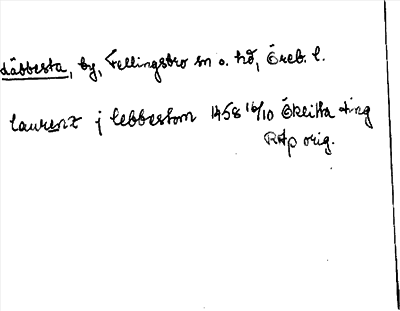 Läbbesta, by, Fellingsbro sn o. hd, Öreb. l.
laurenz j lebbestom 1458 16/10 Ökeitta ting
RAp orig.